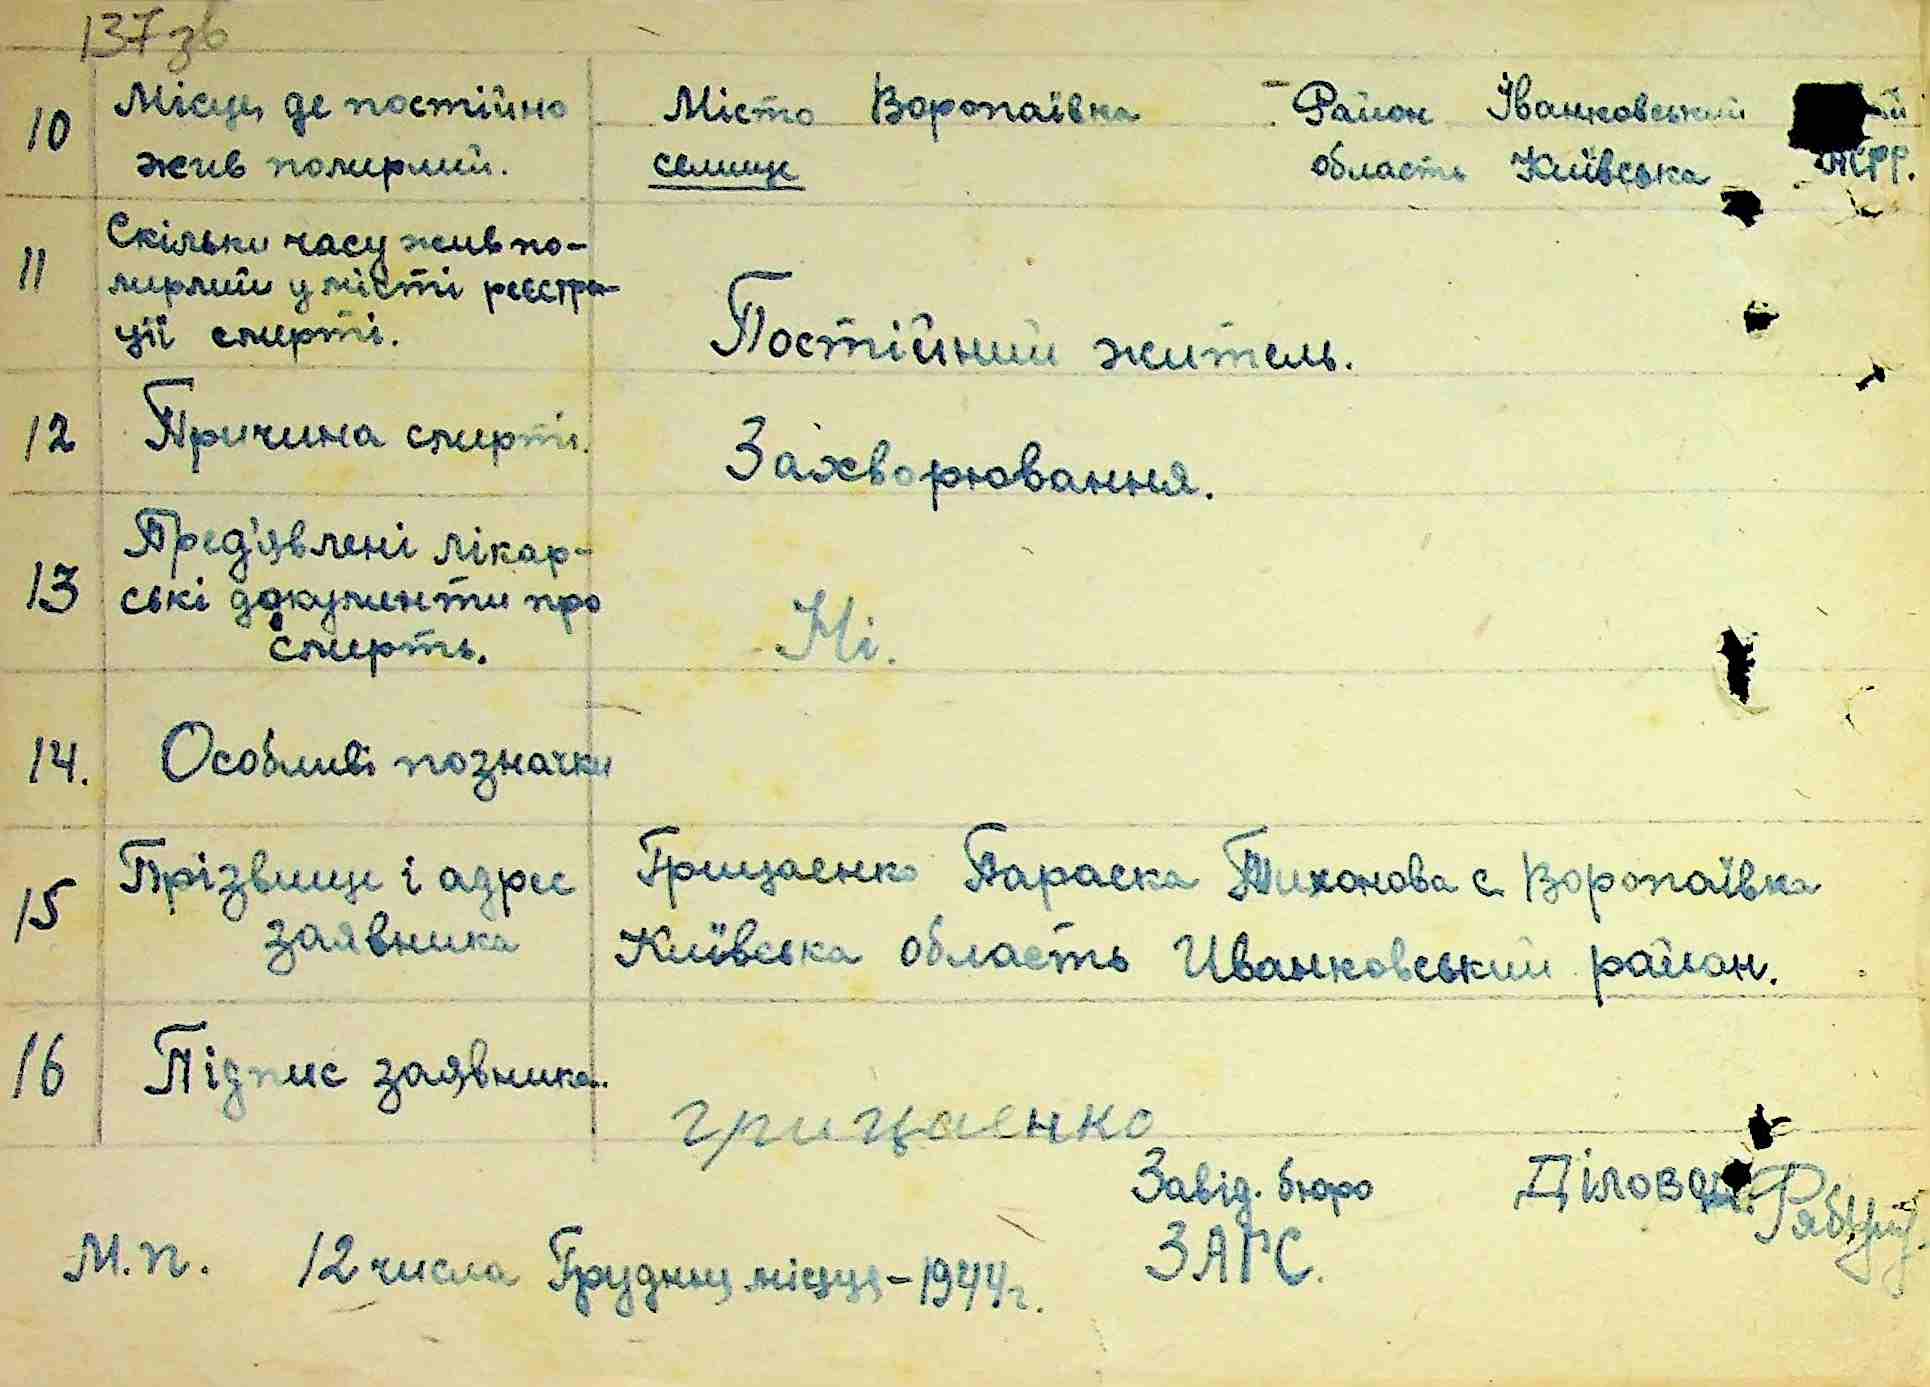 137 зв
10 Місце, де постійно жив померлий. Місто Воропаївка Район Іванковський
селище область Київська
11 Скільки часу жив по-
мерлий у місті реєстра-
ції смерті. Постійний житель.
12 Причина смерті. Захворювання.
13 Пред'явлені лікар-
ські документи про
смерть. Ні.
14. Особливі позначки
15 Прізвище і адрес
заявника
Грицаенко Параска Тихонова с. Воропаївка
Київська область Иванковський район.
16 Підпис заявника.
грицаенко
Завід. бюро
ЗАГС.
Діловод.
М.п. 12 числа Грудня місяця - 1944 г.